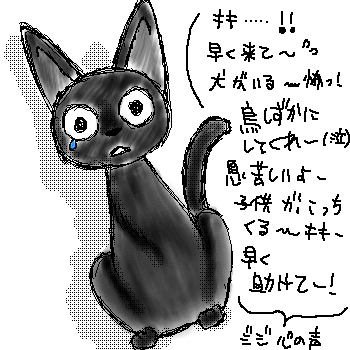 キキ……!!
早く来て〜"っ
犬がいる〜怖っ!
鳥しずかに
してくれ〜(泣)
息苦しいよ〜
子供がこっち
くる〜キキ〜
早く
助けて〜!
ジジ心の声